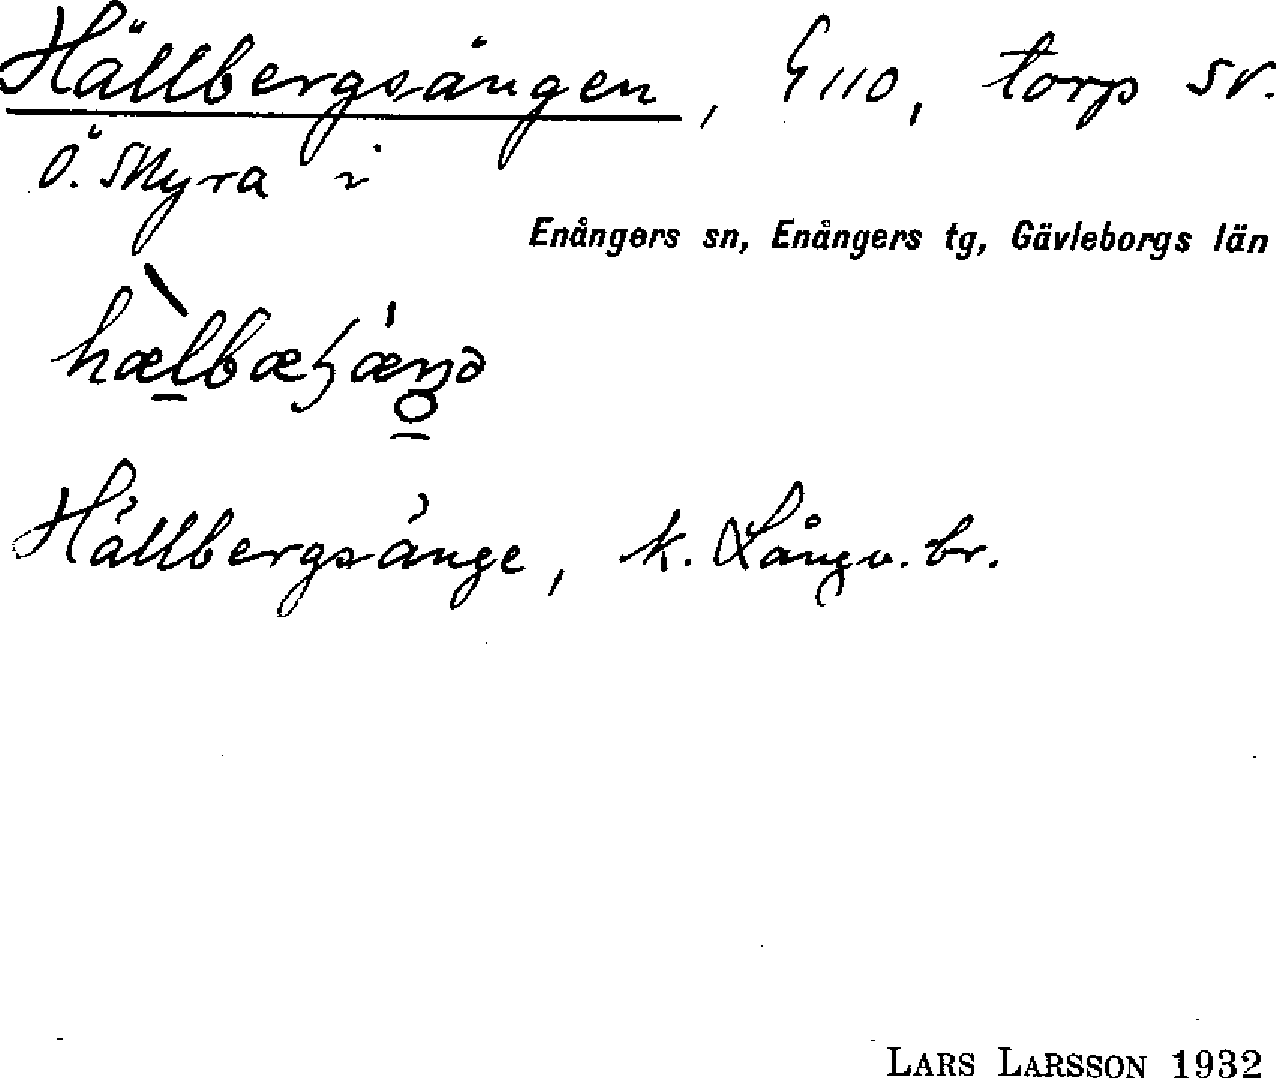 Hällbergsängen, G 110, torp sv.
Ö. Skyra i
Enångers sn, Enångers tg, Gävleborgs län
Hällbergsänge, k. Långv. br.
LARS LARSSON 1932